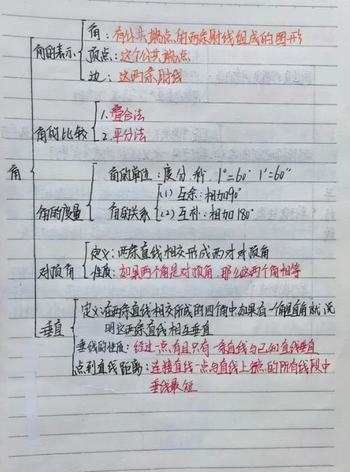 角
角的表示
角：有公共端点的两条射线组成的图形
顶点：这个公共端点
边：这两条射线
角的比较
1.叠合法
2.平分法
角的度量
角的单位：度分秒 1°=60′ 1′=60″
角的关系
(1)互余：相加90°
(2)互补：相加180°
对顶角
定义：两条直线相交形成两对对顶角
性质：如果两个角是对顶角,那么这两个角相等
垂直
定义：在两条直线相交所成的四个角中如果有一个角是直角就说
明这两条直线相互垂直
垂线的性质：经过一点,有且只有一条直线与已知直线垂直
点到直线距离：连接直线一点与直线上的所有线段中
垂线最短